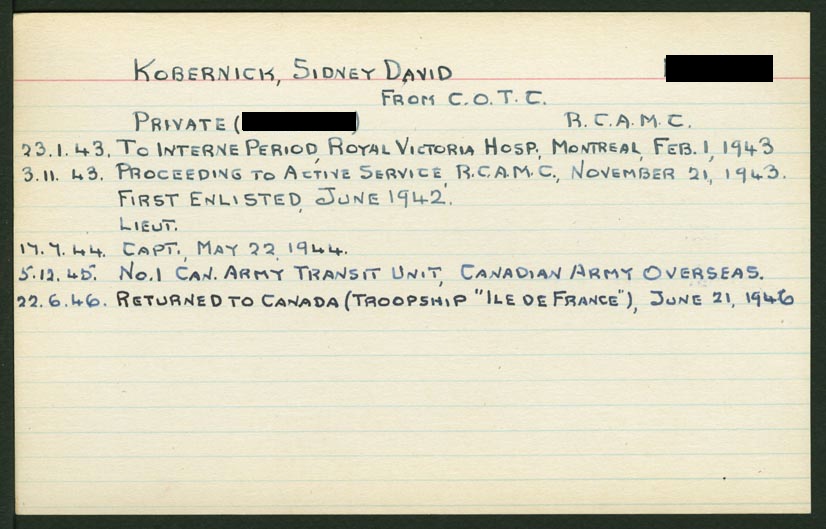 KOBERNICK, SIDNEY DAVID
FROM C.O.T.C.
PRIVATE ( ) R.C.A.M.C.
23.1.43. TO INTERNE PERIOD, ROYAL VICTORIA HOSP., MONTREAL, FEB. 1, 1943
3.11.43. PROCEEDING TO ACTIVE SERVICE, R.C.A.M.C., NOVEMBER 21, 1943.
FIRST ENLISTED, JUNE 1942.
LIEUT.
17.7.44. CAPT., MAY 22, 1944.
5.12.45. NO.1 CAN. ARMY TRANSIT UNIT, CANADIAN ARMY OVERSEAS.
22.6.46. RETURNED TO CANADA (TROOPSHIP "ILE DE FRANCE"), JUNE 21, 1946